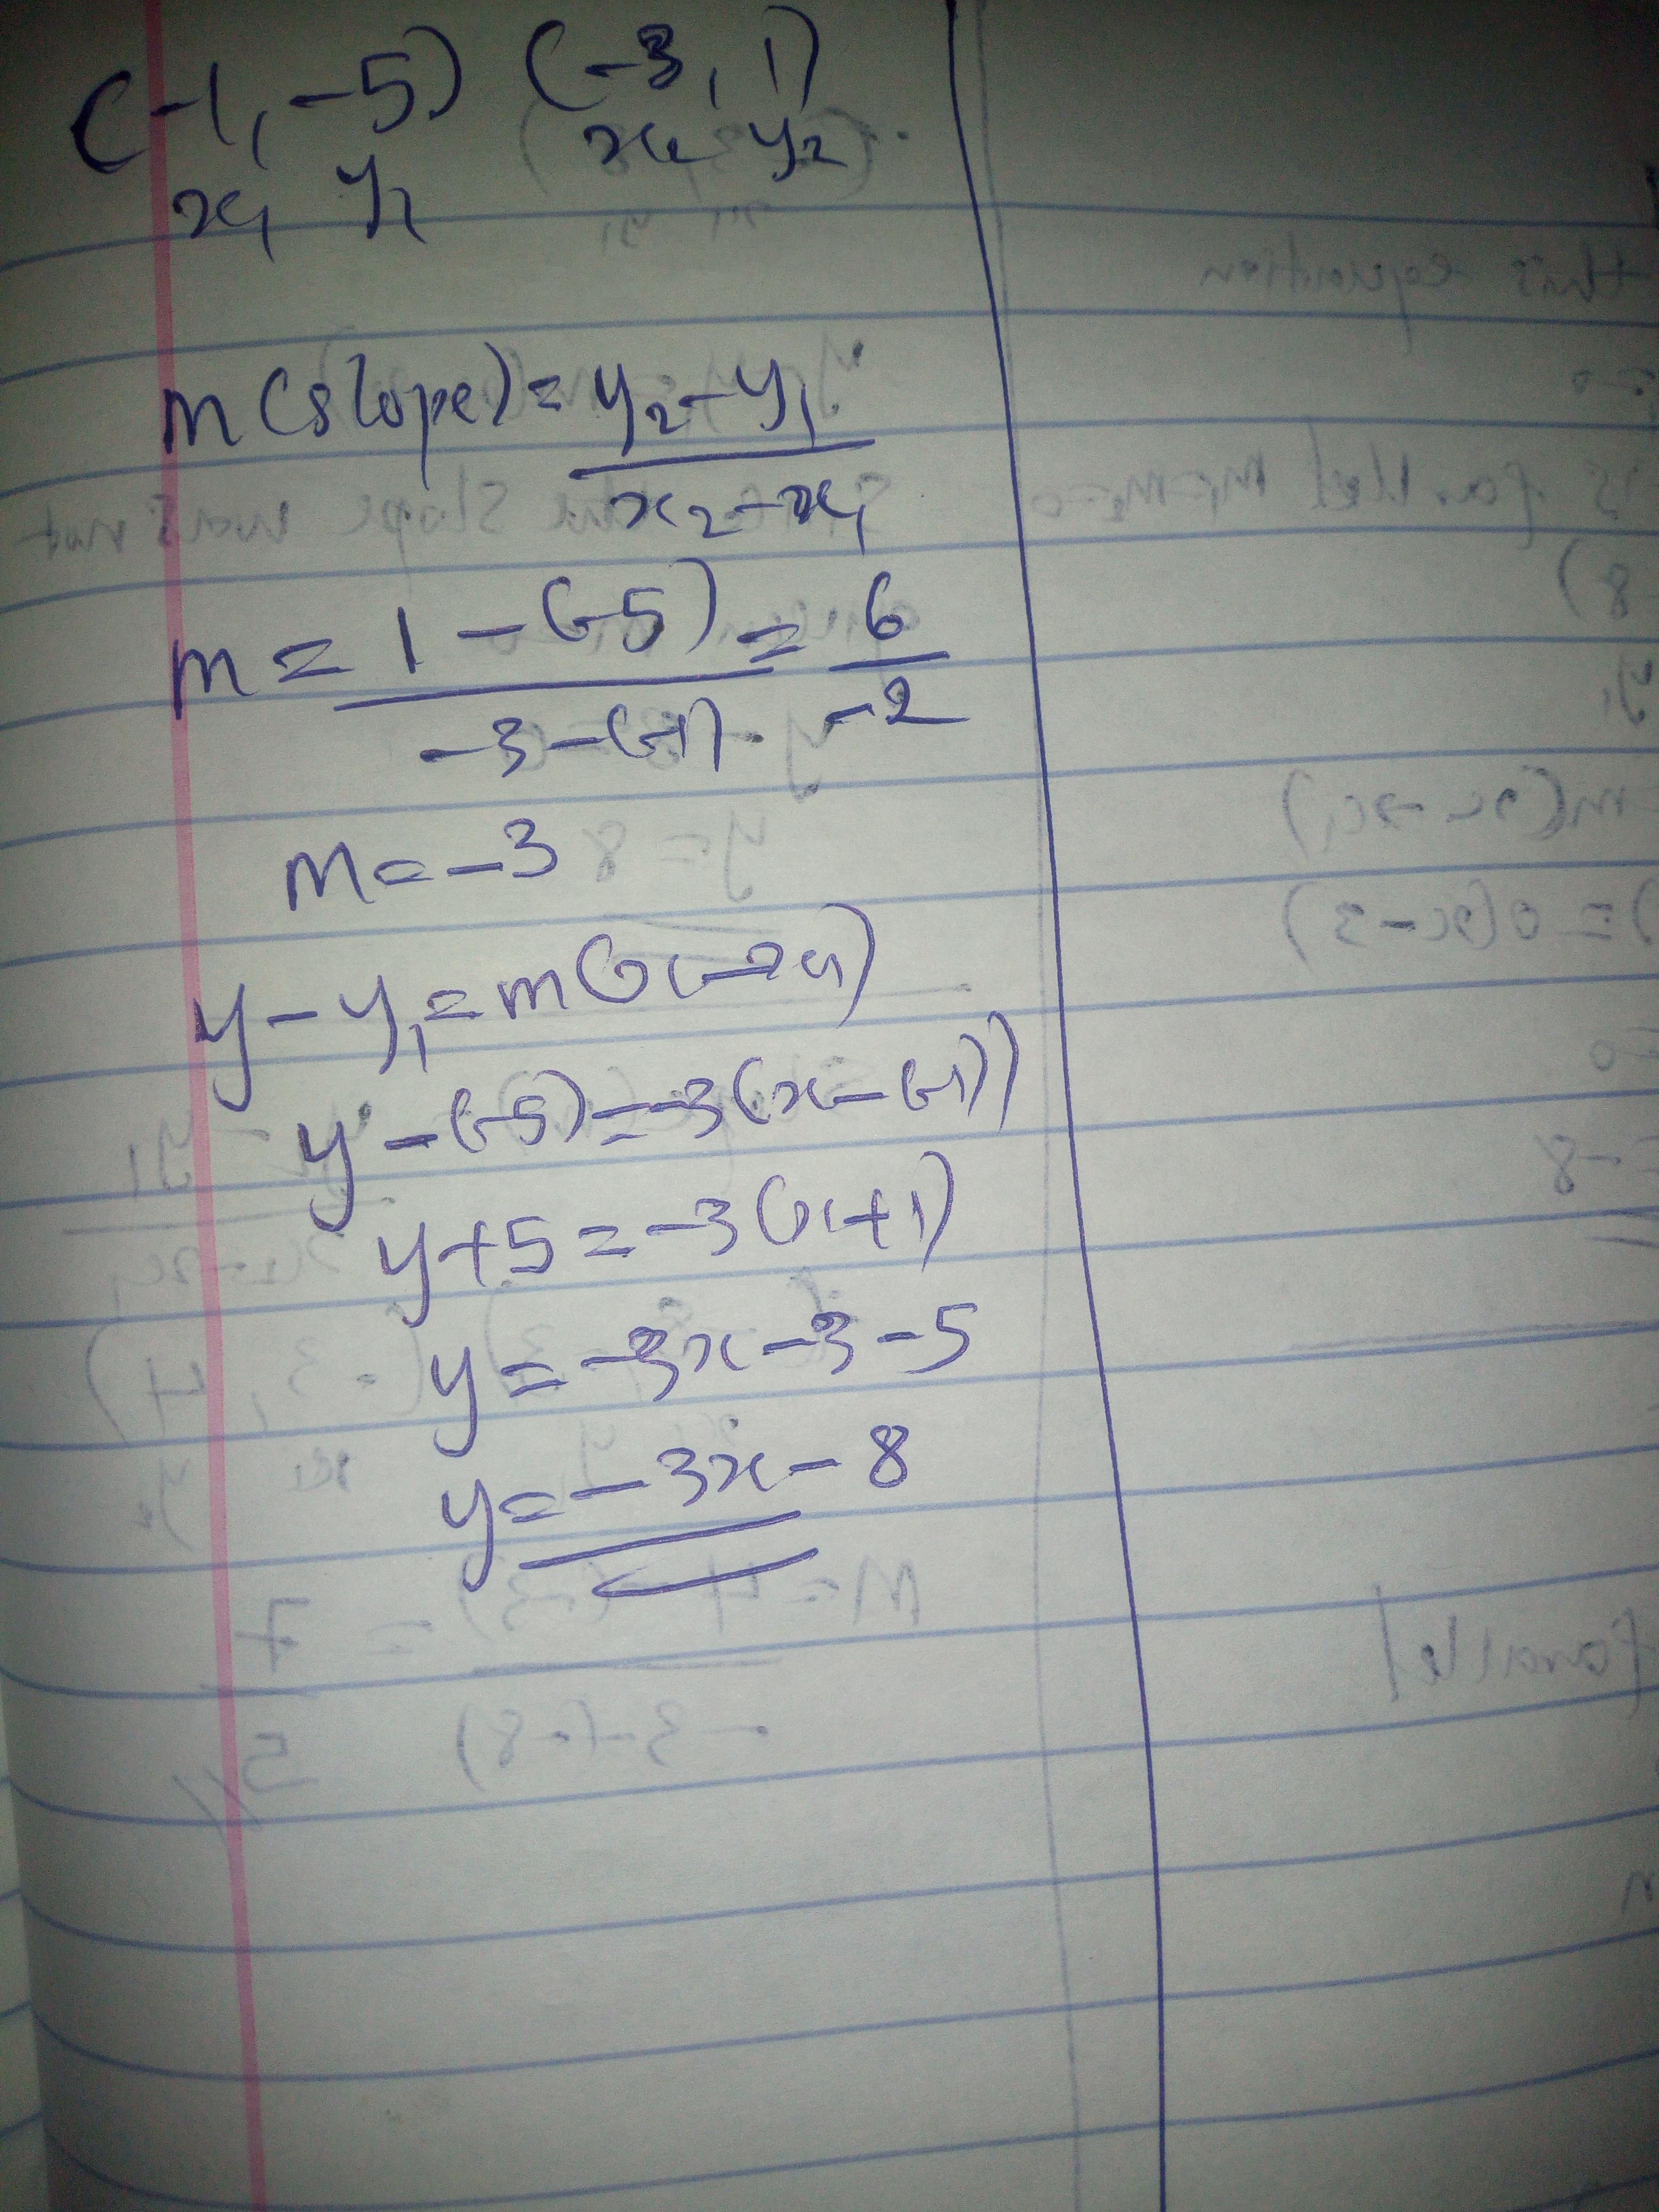 (-1, -5) (-3, 1)
x1 y1 x2 y2
m(slope) = y2 - y1 / x2 - x1
m = 1 - (-5) / -3 - (-1) = 6 / -2
m = -3
y - y1 = m(x - x1)
y - (-5) = -3(x - (-1))
y + 5 = -3(x + 1)
y = -3x - 3 - 5
y = -3x - 8